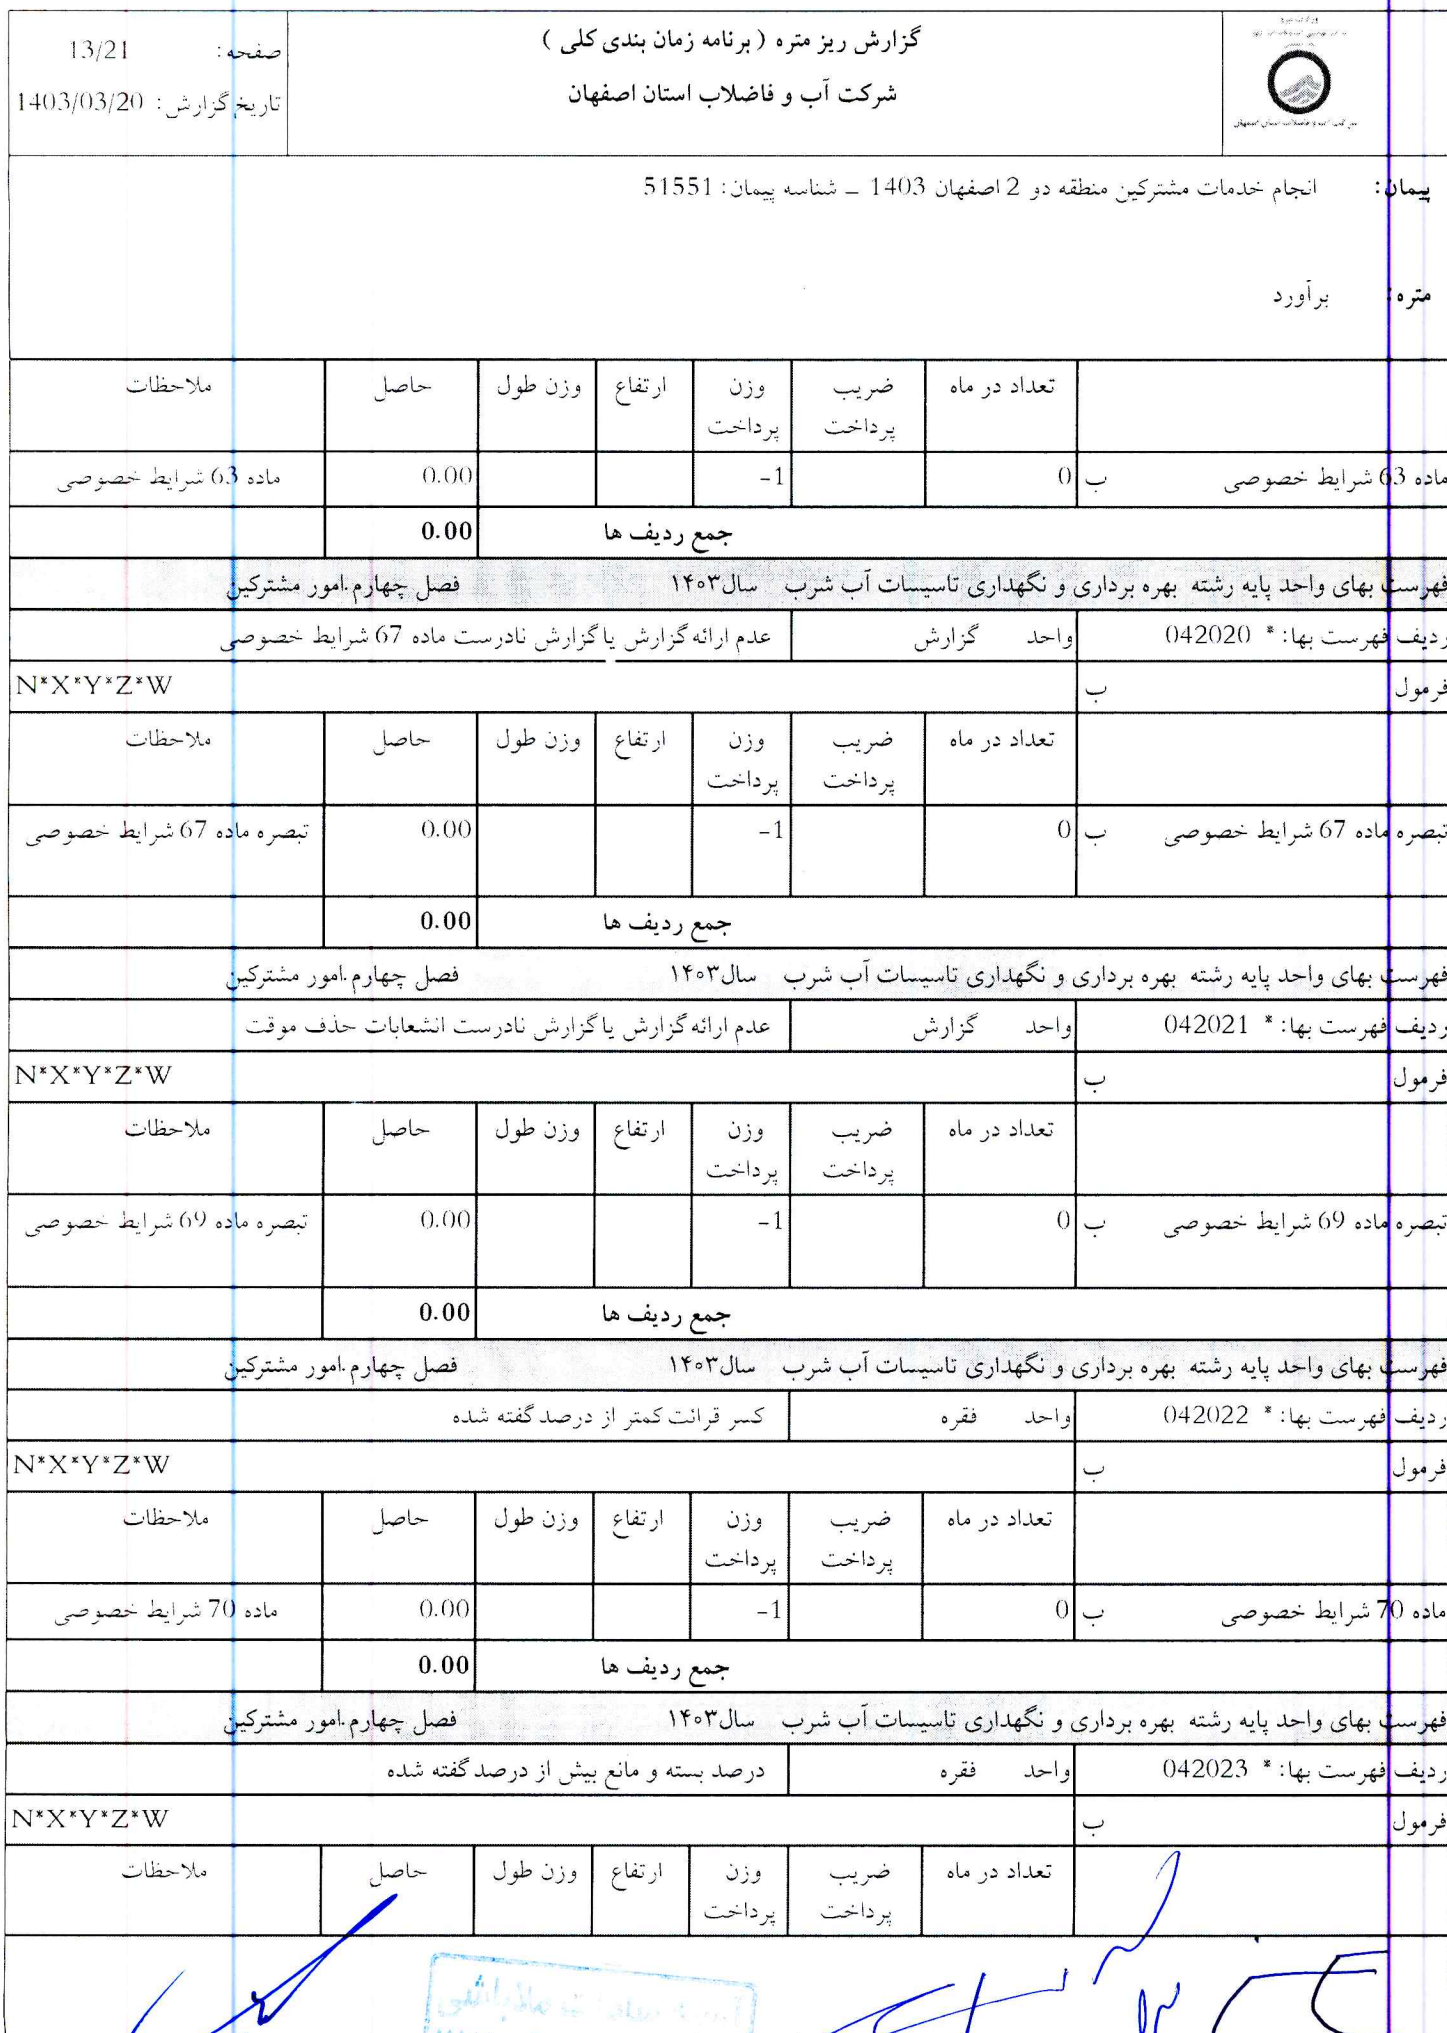 گزارش ریز متره ( برنامه زمان بندی کلی )
شرکت آب و فاضلاب استان اصفهان
صفحه: 13/21
تاریخ گزارش: 1403/03/20
پیمان: انجام خدمات مشترکین منطقه دو 2 اصفهان 1403 – شناسه پیمان: 51551
متره: برآورد
تعداد در ماه ضریب پرداخت وزن پرداخت ارتفاع وزن طول حاصل ملاحظات
ماده 63 شرایط خصوصی ب 0 -1 0.00 ماده 63 شرایط خصوصی
جمع ردیف ها 0.00
فهرست بهای واحد پایه رشته بهره برداری و نگهداری تاسیسات آب شرب سال۱۴۰۳ فصل چهارم.امور مشترکین
ردیف فهرست بها: * 042020 واحد گزارش عدم ارائه گزارش یا گزارش نادرست ماده 67 شرایط خصوصی
فرمول ب N*X*Y*Z*W
تعداد در ماه ضریب پرداخت وزن پرداخت ارتفاع وزن طول حاصل ملاحظات
تبصره ماده 67 شرایط خصوصی ب 0 -1 0.00 تبصره ماده 67 شرایط خصوصی
جمع ردیف ها 0.00
فهرست بهای واحد پایه رشته بهره برداری و نگهداری تاسیسات آب شرب سال۱۴۰۳ فصل چهارم.امور مشترکین
ردیف فهرست بها: * 042021 واحد گزارش عدم ارائه گزارش یا گزارش نادرست انشعابات حذف موقت
فرمول ب N*X*Y*Z*W
تعداد در ماه ضریب پرداخت وزن پرداخت ارتفاع وزن طول حاصل ملاحظات
تبصره ماده 69 شرایط خصوصی ب 0 -1 0.00 تبصره ماده 69 شرایط خصوصی
جمع ردیف ها 0.00
فهرست بهای واحد پایه رشته بهره برداری و نگهداری تاسیسات آب شرب سال۱۴۰۳ فصل چهارم.امور مشترکین
ردیف فهرست بها: * 042022 واحد فقره کسر قرائت کمتر از درصد گفته شده
فرمول ب N*X*Y*Z*W
تعداد در ماه ضریب پرداخت وزن پرداخت ارتفاع وزن طول حاصل ملاحظات
ماده 70 شرایط خصوصی ب 0 -1 0.00 ماده 70 شرایط خصوصی
جمع ردیف ها 0.00
فهرست بهای واحد پایه رشته بهره برداری و نگهداری تاسیسات آب شرب سال۱۴۰۳ فصل چهارم.امور مشترکین
ردیف فهرست بها: * 042023 واحد فقره درصد بسته و مانع بیش از درصد گفته شده
فرمول ب N*X*Y*Z*W
تعداد در ماه ضریب پرداخت وزن پرداخت ارتفاع وزن طول حاصل ملاحظات